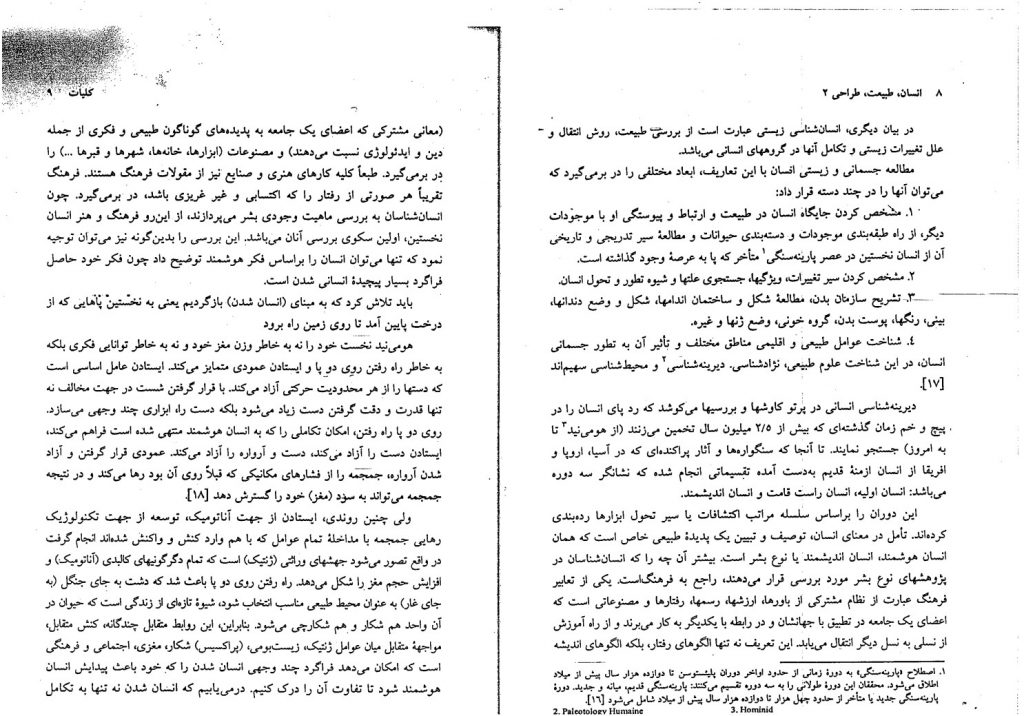 ۸ انسان، طبیعت، طراحی ۲
در بیان دیگری، انسان‌شناسی زیستی عبارت است از بررسی طبیعت، روش انتقال و
علل تغییرات زیستی و تکامل آنها در گروههای انسانی می‌باشد.
مطالعه جسمانی و زیستی انسان با این تعاریف، ابعاد مختلفی را در برمی‌گیرد که
می‌توان آنها را در چند دسته قرار داد:
۱. مشخص کردن جایگاه انسان در طبیعت و ارتباط و پیوستگی او با موجودات
دیگر، از راه طبقه‌بندی موجودات و دسته‌بندی حیوانات و مطالعهٔ سیر تدریجی و تاریخی
آن از انسان نخستین در عصر پارینه‌سنگی۱ متأخر که پا به عرصهٔ وجود گذاشته است.
۲. مشخص کردن سیر تغییرات، ویژگیها، جستجوی علتها و شیوه تطور و تحول انسان.
۳. تشریح سازمان بدن، مطالعهٔ شکل و ساختمان اندامها، شکل و وضع دندانها،
بینی، رنگها، پوست بدن، گروه خونی، وضع ژنها و غیره.
٤. شناخت عوامل طبیعی و اقلیمی مناطق مختلف و تأثیر آن به تطور جسمانی
انسان، در این شناخت علوم طبیعی، نژادشناسی. دیرینه‌شناسی۲ و محیط‌شناسی سهیم‌اند
[۱۷].
دیرینه‌شناسی انسانی در پرتو کاوشها و بررسیها می‌کوشد که رد پای انسان را در
پیچ و خم زمان گذشته‌ای که بیش از ۲/۵ میلیون سال تخمین می‌زنند (از هومی‌نید۳ تا
به امروز) جستجو نمایند. تا آنجا که سنگواره‌ها و آثار پراکنده‌ای که در آسیا، اروپا و
افریقا از انسان ازمنهٔ قدیم به‌دست آمده تقسیماتی انجام شده که نشانگر سه دوره
می‌باشد: انسان اولیه، انسان راست قامت و انسان اندیشمند.
این دوران را براساس سلسله مراتب اکتشافات یا سیر تحول ابزارها رده‌بندی
کرده‌اند. تأمل در معنای انسان، توصیف و تبیین یک پدیدهٔ طبیعی خاص است که همان
انسان هوشمند، انسان اندیشمند یا نوع بشر است. بیشتر آن چه را که انسان‌شناسان در
پژوهشهای نوع بشر مورد بررسی قرار می‌دهند، راجع به فرهنگ‌است. یکی از تعابیر
فرهنگ عبارت از نظام مشترکی از باورها، ارزشها، رسمها، رفتارها و مصنوعاتی است که
اعضای یک جامعه در تطبیق با جهانشان و در رابطه با یکدیگر به کار می‌برند و از راه آموزش
از نسلی به نسل دیگر انتقال می‌یابد. این تعریف نه تنها الگوهای رفتار، بلکه الگوهای اندیشه
۱. اصطلاح «پارینه‌سنگی» به دورهٔ زمانی از حدود اواخر دوران پلیئستوسن تا دوازده هزار سال پیش از میلاد
اطلاق می‌شود. محققان این دورهٔ طولانی را به سه دوره تقسیم می‌کنند: پارینه‌سنگی قدیم، میانه و جدید. دورهٔ
پارینه‌سنگی جدید یا متأخر از حدود چهل هزار تا دوازده هزار سال پیش از میلاد شامل می‌شود [۱۶].
2. Paleotology Humaine 3. Hominid
کلیات ۹
(معانی مشترکی که اعضای یک جامعه به پدیده‌های گوناگون طبیعی و فکری از جمله
دین و ایدئولوژی نسبت می‌دهند) و مصنوعات (ابزارها، خانه‌ها، شهرها و قبرها ...) را
در برمی‌گیرد. طبعاً کلیه کارهای هنری و صنایع نیز از مقولات فرهنگ هستند. فرهنگ
تقریباً هر صورتی از رفتار را که اکتسابی و غیر غریزی باشد، در برمی‌گیرد. چون
انسان‌شناسان به بررسی ماهیت وجودی بشر می‌پردازند، از این‌رو فرهنگ و هنر انسان
نخستین، اولین سکوی بررسی آنان می‌باشد. این بررسی را بدین‌گونه نیز می‌توان توجیه
نمود که تنها می‌توان انسان را براساس فکر هوشمند توضیح داد چون فکر خود حاصل
فراگرد بسیار پیچیدهٔ انسانی شدن است.
باید تلاش کرد که به مبنای (انسان شدن) بازگردیم یعنی به نخستین پاهایی که از
درخت پایین آمد تا روی زمین راه برود
هومی‌نید نخست خود را نه به خاطر وزن مغز خود و نه به خاطر توانایی فکری بلکه
به خاطر راه رفتن روی دو پا و ایستادن عمودی متمایز می‌کند. ایستادن عامل اساسی است
که دستها را از هر محدودیت حرکتی آزاد می‌کند. با قرار گرفتن شست در جهت مخالف نه
تنها قدرت و دقت گرفتن دست زیاد می‌شود بلکه دست را، ابزاری چند وجهی می‌سازد.
روی دو پا راه رفتن، امکان تکاملی را که به انسان هوشمند منتهی شده است فراهم می‌کند،
ایستادن دست را آزاد می‌کند، دست و آرواره را آزاد می‌کند. عمودی قرار گرفتن و آزاد
شدن آرواره، جمجمه را از فشارهای مکانیکی که قبلاً روی آن بود رها می‌کند و در نتیجه
جمجمه می‌تواند به سود (مغز) خود را گسترش دهد [۱۸].
ولی چنین روندی، ایستادن از جهت آناتومیک، توسعه از جهت تکنولوژیک
رهایی جمجمه با مداخلهٔ تمام عوامل که با هم وارد کنش و واکنش شده‌اند انجام گرفت
در واقع تصور می‌شود جهشهای وراثتی (ژنتیک) است که تمام دگرگونیهای کالبدی (آناتومیک) و
افزایش حجم مغز را شکل می‌دهد. راه رفتن روی دو پا باعث شد که دشت به جای جنگل (به
جای غار) به عنوان محیط طبیعی مناسب انتخاب شود، شیوهٔ تازه‌ای از زندگی است که حیوان در
آن واحد هم شکار و هم شکارچی می‌شود. بنابراین، این روابط متقابل چندگانه، کنش متقابل،
مواجههٔ متقابل میان عوامل ژنتیک، زیست‌بومی، (پراکسیس) شکار، مغزی، اجتماعی و فرهنگی
است که امکان می‌دهد فراگرد چند وجهی انسان شدن را که خود باعث پیدایش انسان
هوشمند شود تا تفاوت آن را درک کنیم. درمی‌یابیم که انسان شدن نه تنها به تکامل